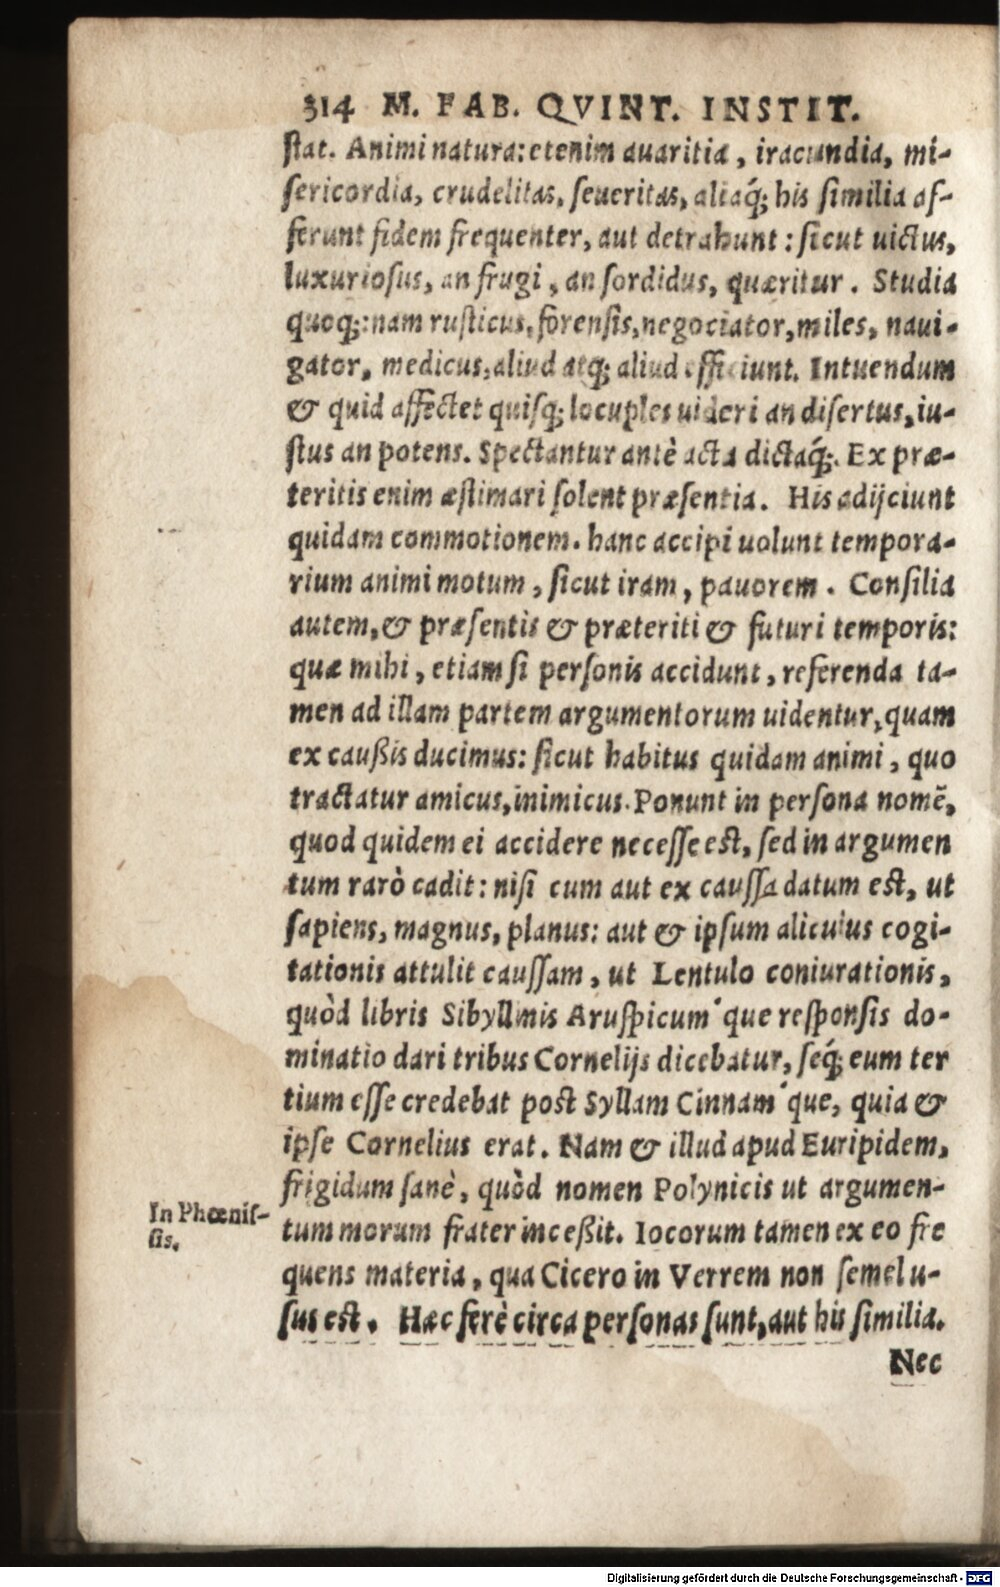 314 M. FAB. QVINT. INSTIT.
ſtat. Animi natura: etenim auaritia, iracundia, mi-
ſericordia, crudelitas, ſeueritas, aliaq́; his ſimilia af-
ferunt fidem frequenter, aut detrahunt: ſicut uictus,
luxurioſus, an frugi, an ſordidus, quæritur. Studia
quoq;: nam ruſticus, forenſis, negociator, miles, naui-
gator, medicus, aliud atq; aliud efficiunt. Intuendum
& quid affectet quiſq; locuples uideri an diſertus, iu-
ſtus an potens. Spectantur antè acta dictaq́;. Ex præ-
teritis enim æſtimari ſolent præſentia. His adijciunt
quidam commotionem. hanc accipi uolunt tempora-
rium animi motum, ſicut iram, pauorem. Conſilia
autem, & præſentis & præteriti & futuri temporis:
quæ mihi, etiam ſi perſonis accidunt, referenda ta-
men ad illam partem argumentorum uidentur, quam
ex caußis ducimus: ſicut habitus quidam animi, quo
tractatur amicus, inimicus. Ponunt in perſona nomẽ,
quod quidem ei accidere neceſſe eſt, ſed in argumen
tum rarò cadit: niſi cum aut ex cauſſa datum eſt, ut
ſapiens, magnus, planus: aut & ipſum alicuius cogi-
tationis attulit cauſſam, ut Lentulo coniurationis,
quòd libris Sibyllinis Aruſpicum'que reſponſis do-
minatio dari tribus Cornelijs dicebatur, ſeq́; eum ter
tium eſſe credebat poſt Syllam Cinnam'que, quia &
ipſe Cornelius erat. Nam & illud apud Euripidem,
frigidum ſanè, quòd nomen Polynicis ut argumen-
In Phœniſ-
ſis.
tum morum frater inceßit. Iocorum tamen ex eo fre
quens materia, qua Cicero in Verrem non ſemel u-
ſus eſt. Hæc ferè circa perſonas ſunt, aut his ſimilia.
Nec
Digitalisierung gefördert durch die Deutsche Forschungsgemeinschaft - DFG